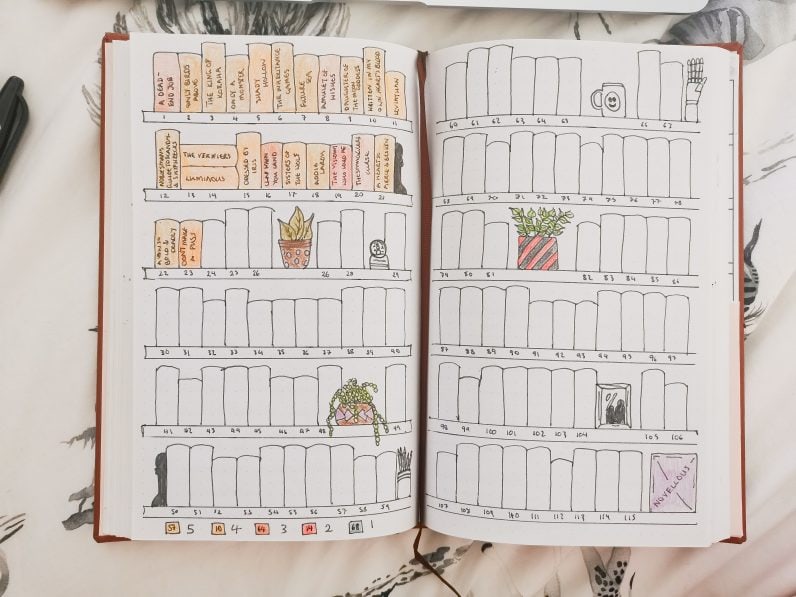 A DEAD-
END JOB
BIRDS
ABOVE
THE KING OF
ONCE A
MONSTER
SHADY
HOLLOW
THE INHERITANCE
GAMES
SEA
AMULET OF
WISHES
DAUGHTER OF
THE MOON
GODDESS
WRITTEN IN MY
OWN HEART'S BLOOD
LEVIATHAN
1 2 3 4 5 6 7 8 9 10 11
GUIDE TO
& SHIPWRECKS
THE
LUMINOUS
BY
IRIS
CLAP WHEN
YOU LAND
SISTERS OF
THE WOLF
THE VISCOUNT
WHO LOVED ME
THE SMUGGLER'S
CURSE
A HEART SO
FIERCE & BROKEN
12 13 14 15 16 17 18 19 20 21
A VOW SO
BOLD & DEADLY
DON'T MAKE
A FUSS
22 23 24 25 26 26 28 29
30 31 32 33 34 35 36 37 38 39 40
41 42 43 44 45 46 47 48 49
50 51 52 53 54 55 56 57 58 59
57 5 10 4 64 3 19 2 68 1
60 61 62 63 64 65 66 67
68 69 70 71 72 73 74 75 76 77 78
79 80 81 82 83 84 85 86
87 88 89 90 91 92 93 94 95 96 97
98 99 100 101 102 103 104 105 106
NOVELLOUS
107 108 109 110 111 112 113 114 115